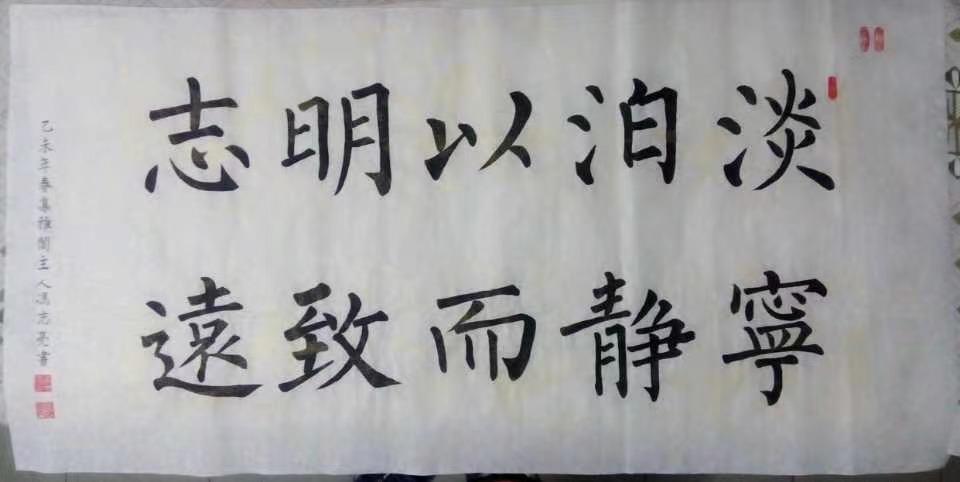 淡泊以明志
寧静而致遠
乙未年春集雅閣主人馮志亮書